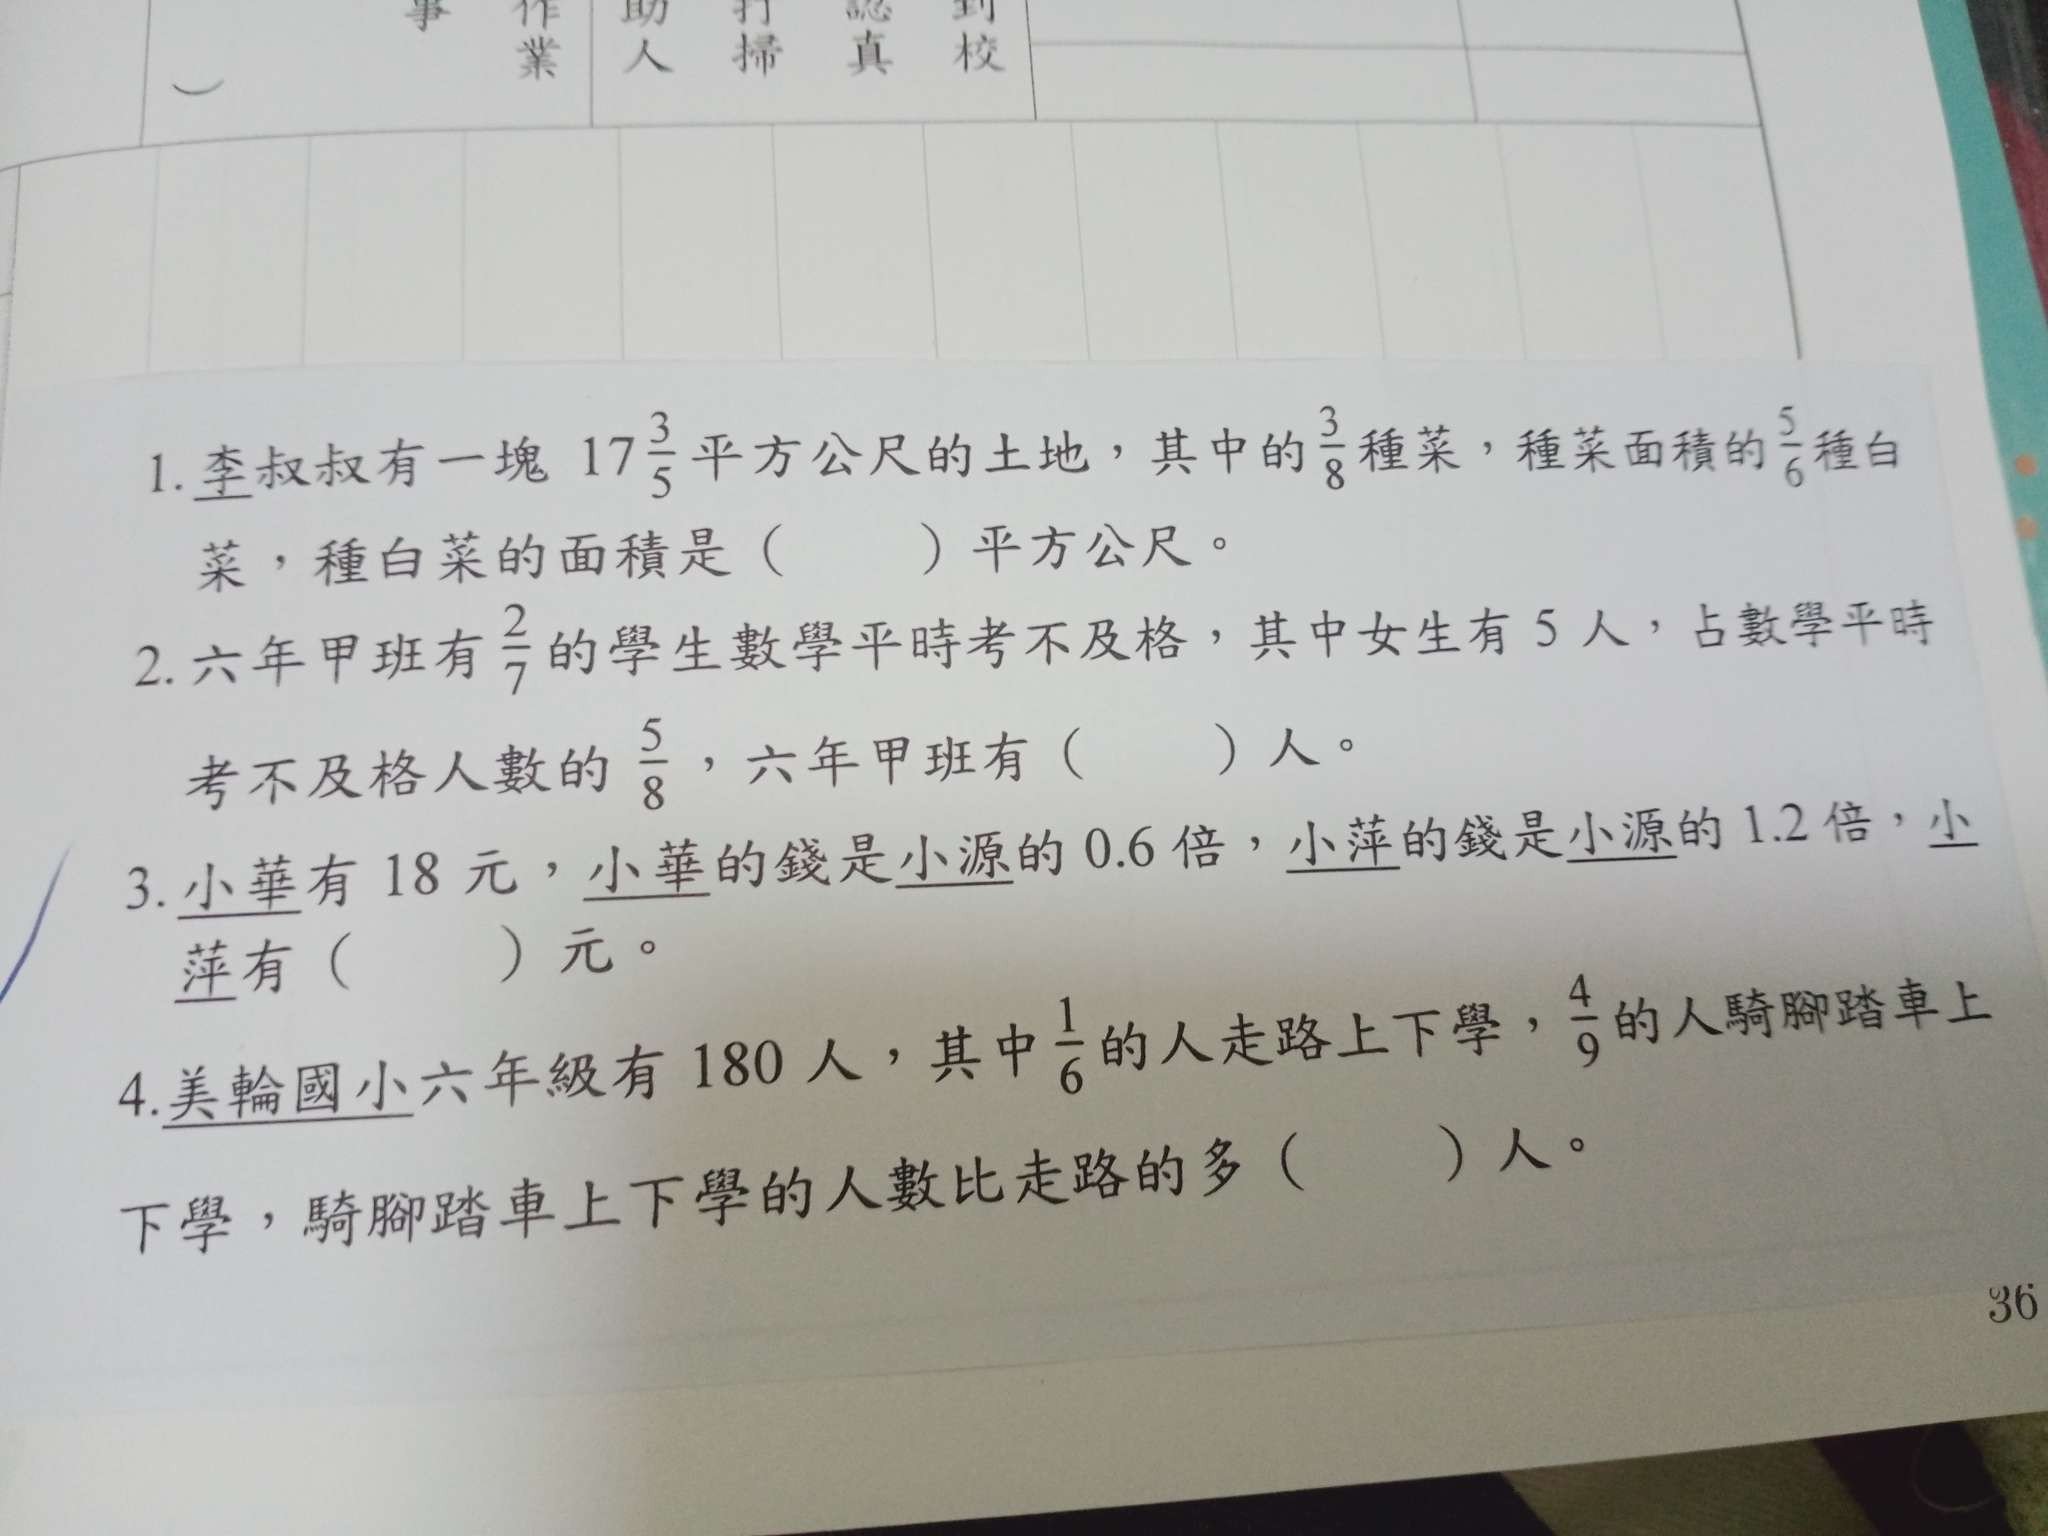 事
作業
助人
打掃
認真
到校
）
1. 李叔叔有一塊 17 3/5 平方公尺的土地，其中的 3/8 種菜，種菜面積的 5/6 種白
菜，種白菜的面積是（　　）平方公尺。
2. 六年甲班有 2/7 的學生數學平時考不及格，其中女生有 5 人，占數學平時
考不及格人數的 5/8 ，六年甲班有（　　）人。
3. 小華有 18 元，小華的錢是小源的 0.6 倍，小萍的錢是小源的 1.2 倍，小
萍有（　　）元。
4.美輪國小六年級有 180 人，其中 1/6 的人走路上下學，4/9 的人騎腳踏車上
下學，騎腳踏車上下學的人數比走路的多（　　）人。
36